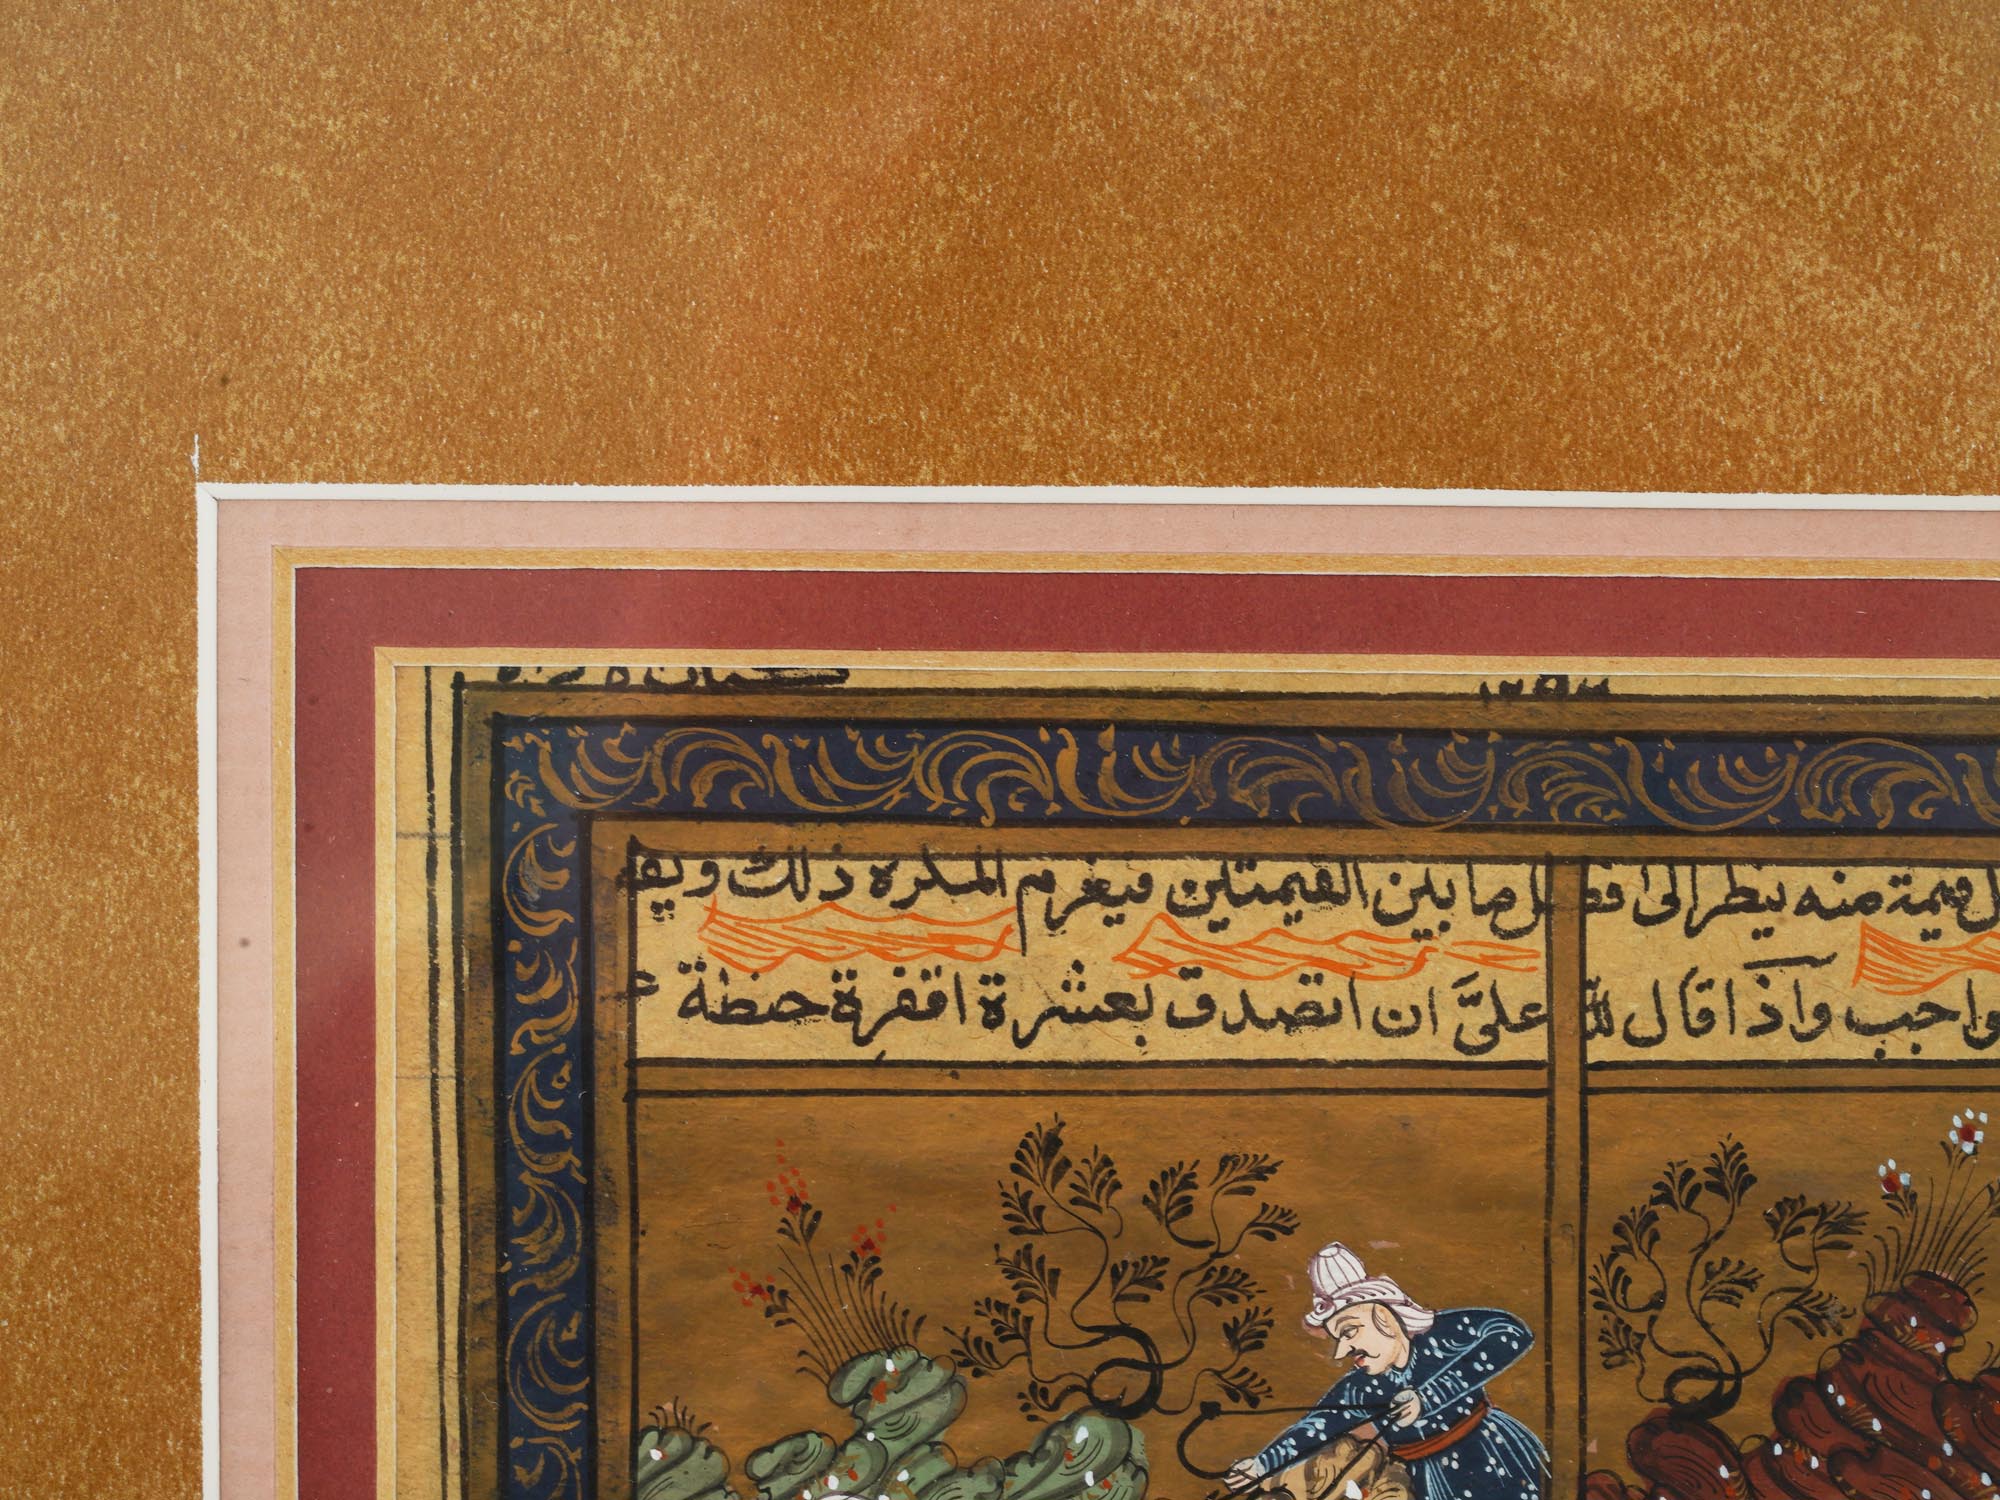 ١٢٥٣
قيمة منه ينظر الى فضل ما بين القيمتين فيغرم المكره ذلك
واجب واذا قال لله علىَّ ان اتصدق بعشرة اقفزة حنطة